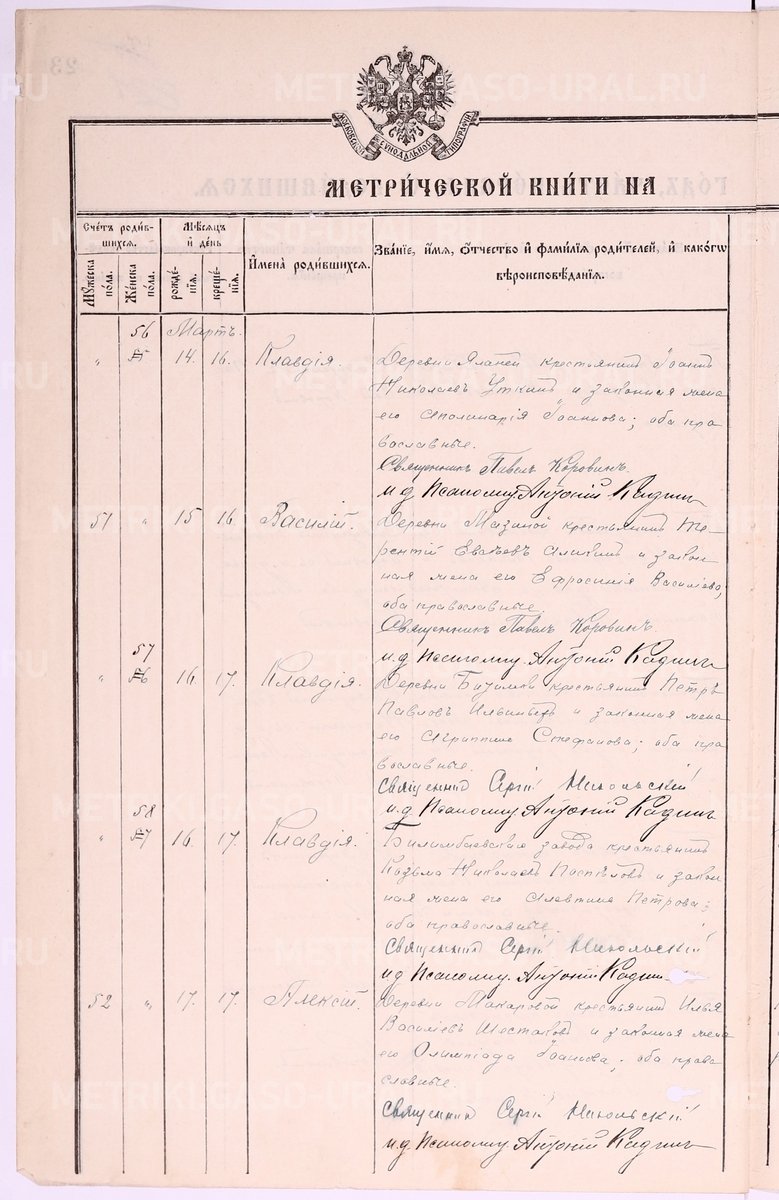 МОСКОВСКОЙ СѴНОДАЛЬНОЙ ТИПОГРАФІИ
МЕТРИ́ЧЕСКОЙ КНИ́ГИ НА
Сче́тъ роди́вшихся.
Му́жеска по́ла.
Же́нска по́ла.
Мѣ́сяцъ и҆ де́нь
рожде́нія.
креще́нія.
И҆мена̀ роди́вшихся.
Зва́ніе, и҆́мя, ѻ҆́тчество и҆ фами́лія роди́телей, и҆ како́гѡ вѣроисповѣ́данія.
56 Мартъ.
" 55 14. 16. Клавдія. Деревни крестьянинъ Іоаннъ
Николаевъ Уткинъ и законная жена
его Аполинарія Іоаннова; оба пра
вославные.
Священникъ Павелъ Коровинъ.
и.д. Псаломщ. Антоній
51 " 15 16. Василій. Деревни Мазиной крестьянинъ Те
рентій и закон
ная жена его Ефросинія Василіева,
оба православные.
Священникъ Павелъ Коровинъ.
57 и.д. Псаломщ. Антоній
" 56 16. 17. Клавдія. Деревни крестьянинъ Петръ
Павловъ и законная жена
его Агриппина Стефанова; оба пра
вославные.
Священникъ Сергій Никольскій
58 и.д. Псаломщ. Антоній
" 57 16. 17. Клавдія. Билимбаевскаго завода крестьянинъ
Козьма Николаевъ Поспѣловъ и закон
ная жена его Алевтина Петрова;
оба православные.
Священникъ Сергій Никольскій
и.д. Псаломщ. Антоній
52 " 17. 17. Алексій. Деревни Макаровой крестьянинъ Илья
Василіевъ Шестаковъ и законная жена
его Олимпіада Іоаннова; оба право
славные.
Священникъ Сергій Никольскій
и.д. Псаломщ. Антоній
METRIKI.GASO-URAL.RU